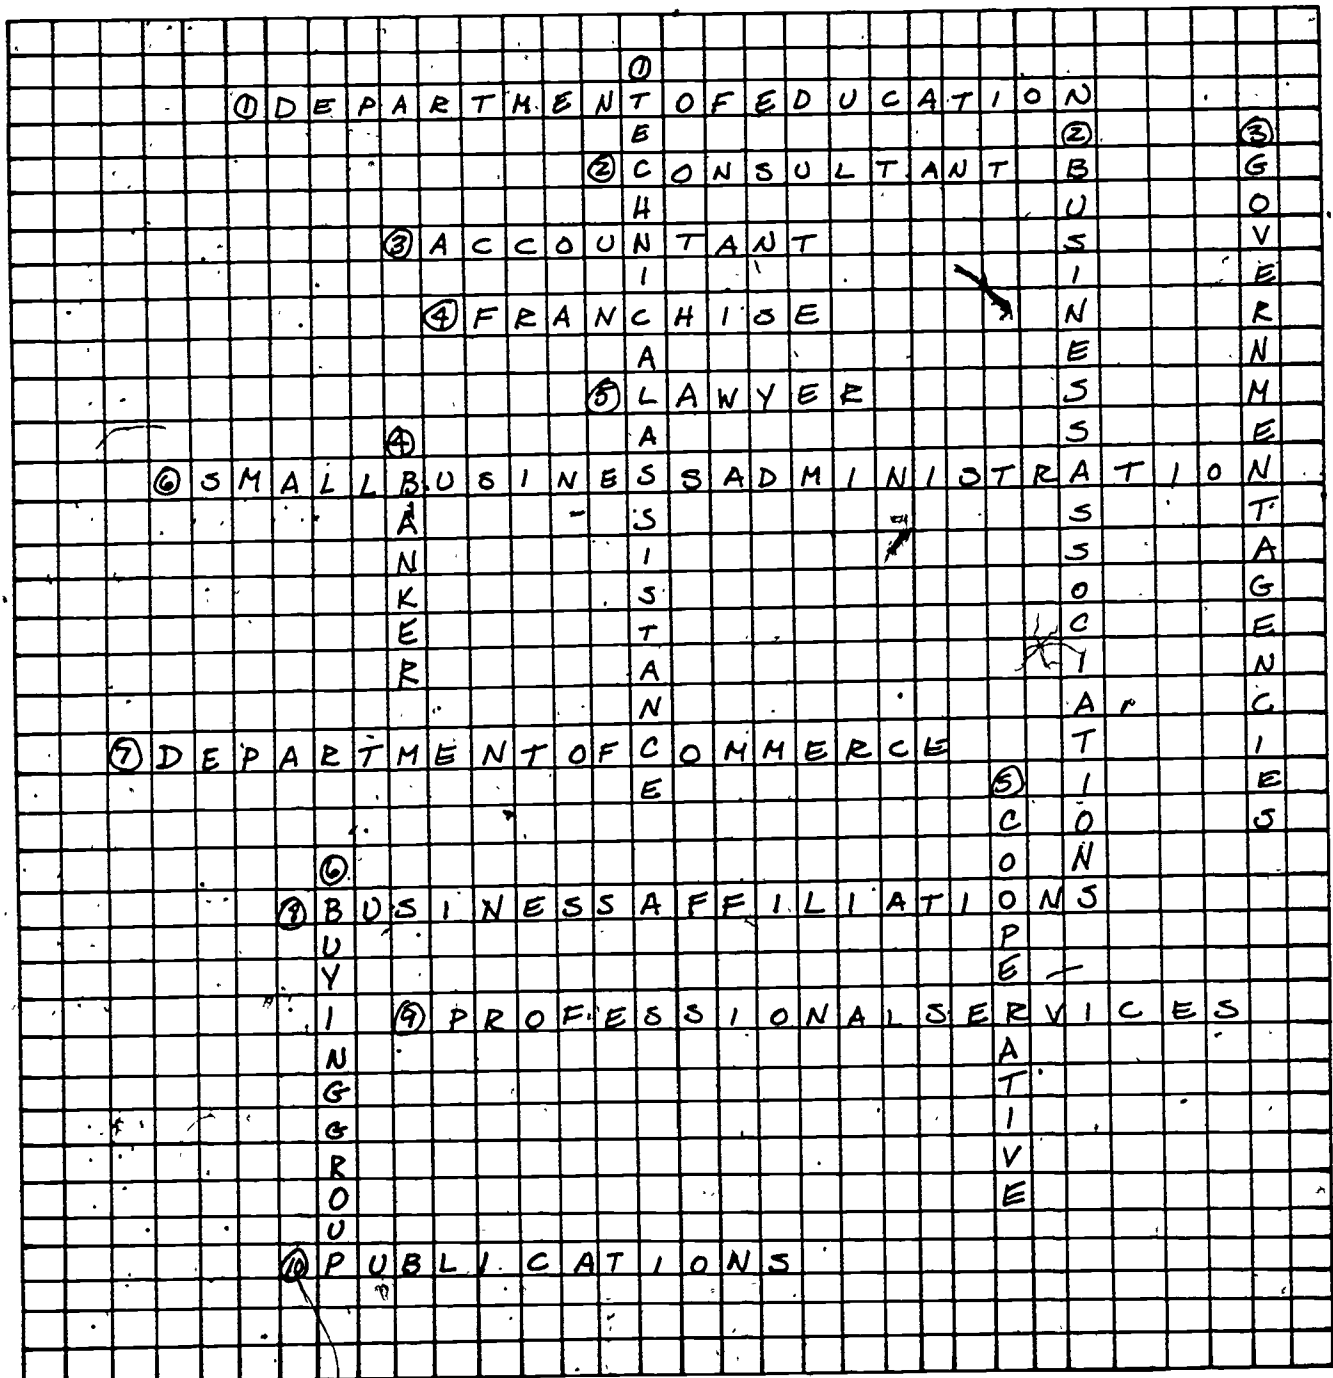 ①
① DEPARTMENTOFEDUCATION
② ③
② CONSULTANT
③ ACCOUNTANT
④ FRANCHISE
⑤ LAWYER
④
⑥ SMALLBUSINESSADMINISTRATION
⑦ DEPARTMENTOFCOMMERCE
⑤
⑥
⑧ BUSINESSAFFILIATIONS
⑨ PROFESSIONALSERVICES
⑩ PUBLICATIONS
TECHNICALASSISTANCE
BUSINESSASSOCIATIONS
GOVERNMENTAGENCIES
BANKER
COOPERATIVE
BUYINGGROUP